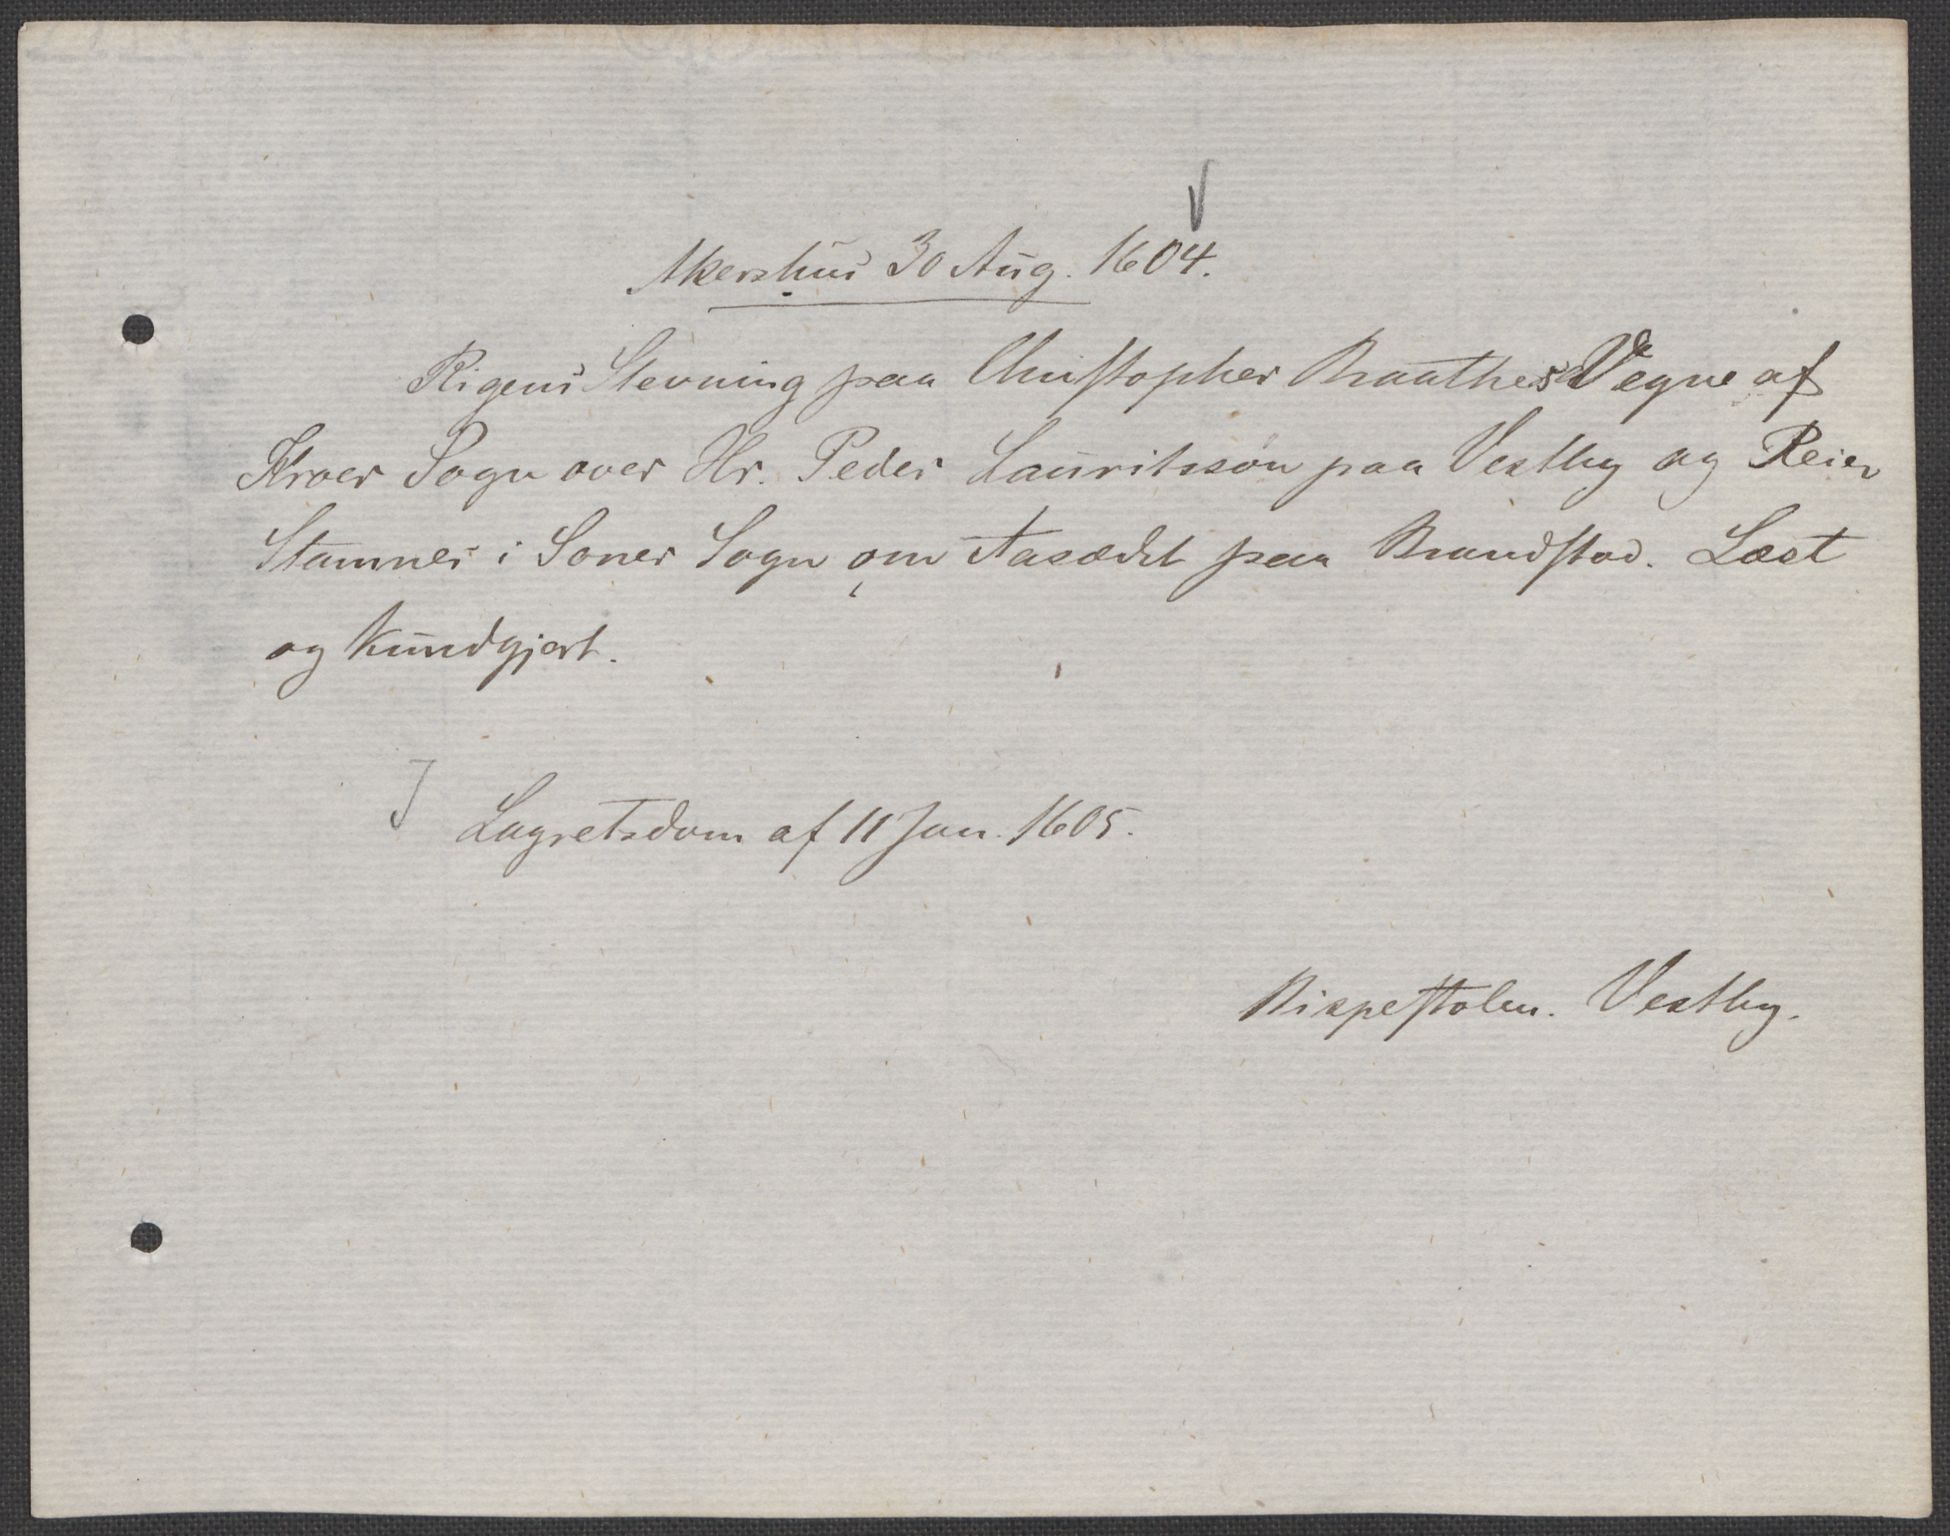 Akershus 30 Aug. 1604.
Rigens Stevning paa Christopher Braathes Vegne af
Kroer Sogn over Hr. Peder Lauritssøn paa Vestby og Reier
Stamnes i Soner Sogn om Aasædet paa Brandstad. Læst
og kundgjort.
I Lagretsdom af 11 Jan. 1605.
Bispestolen. Vestby.